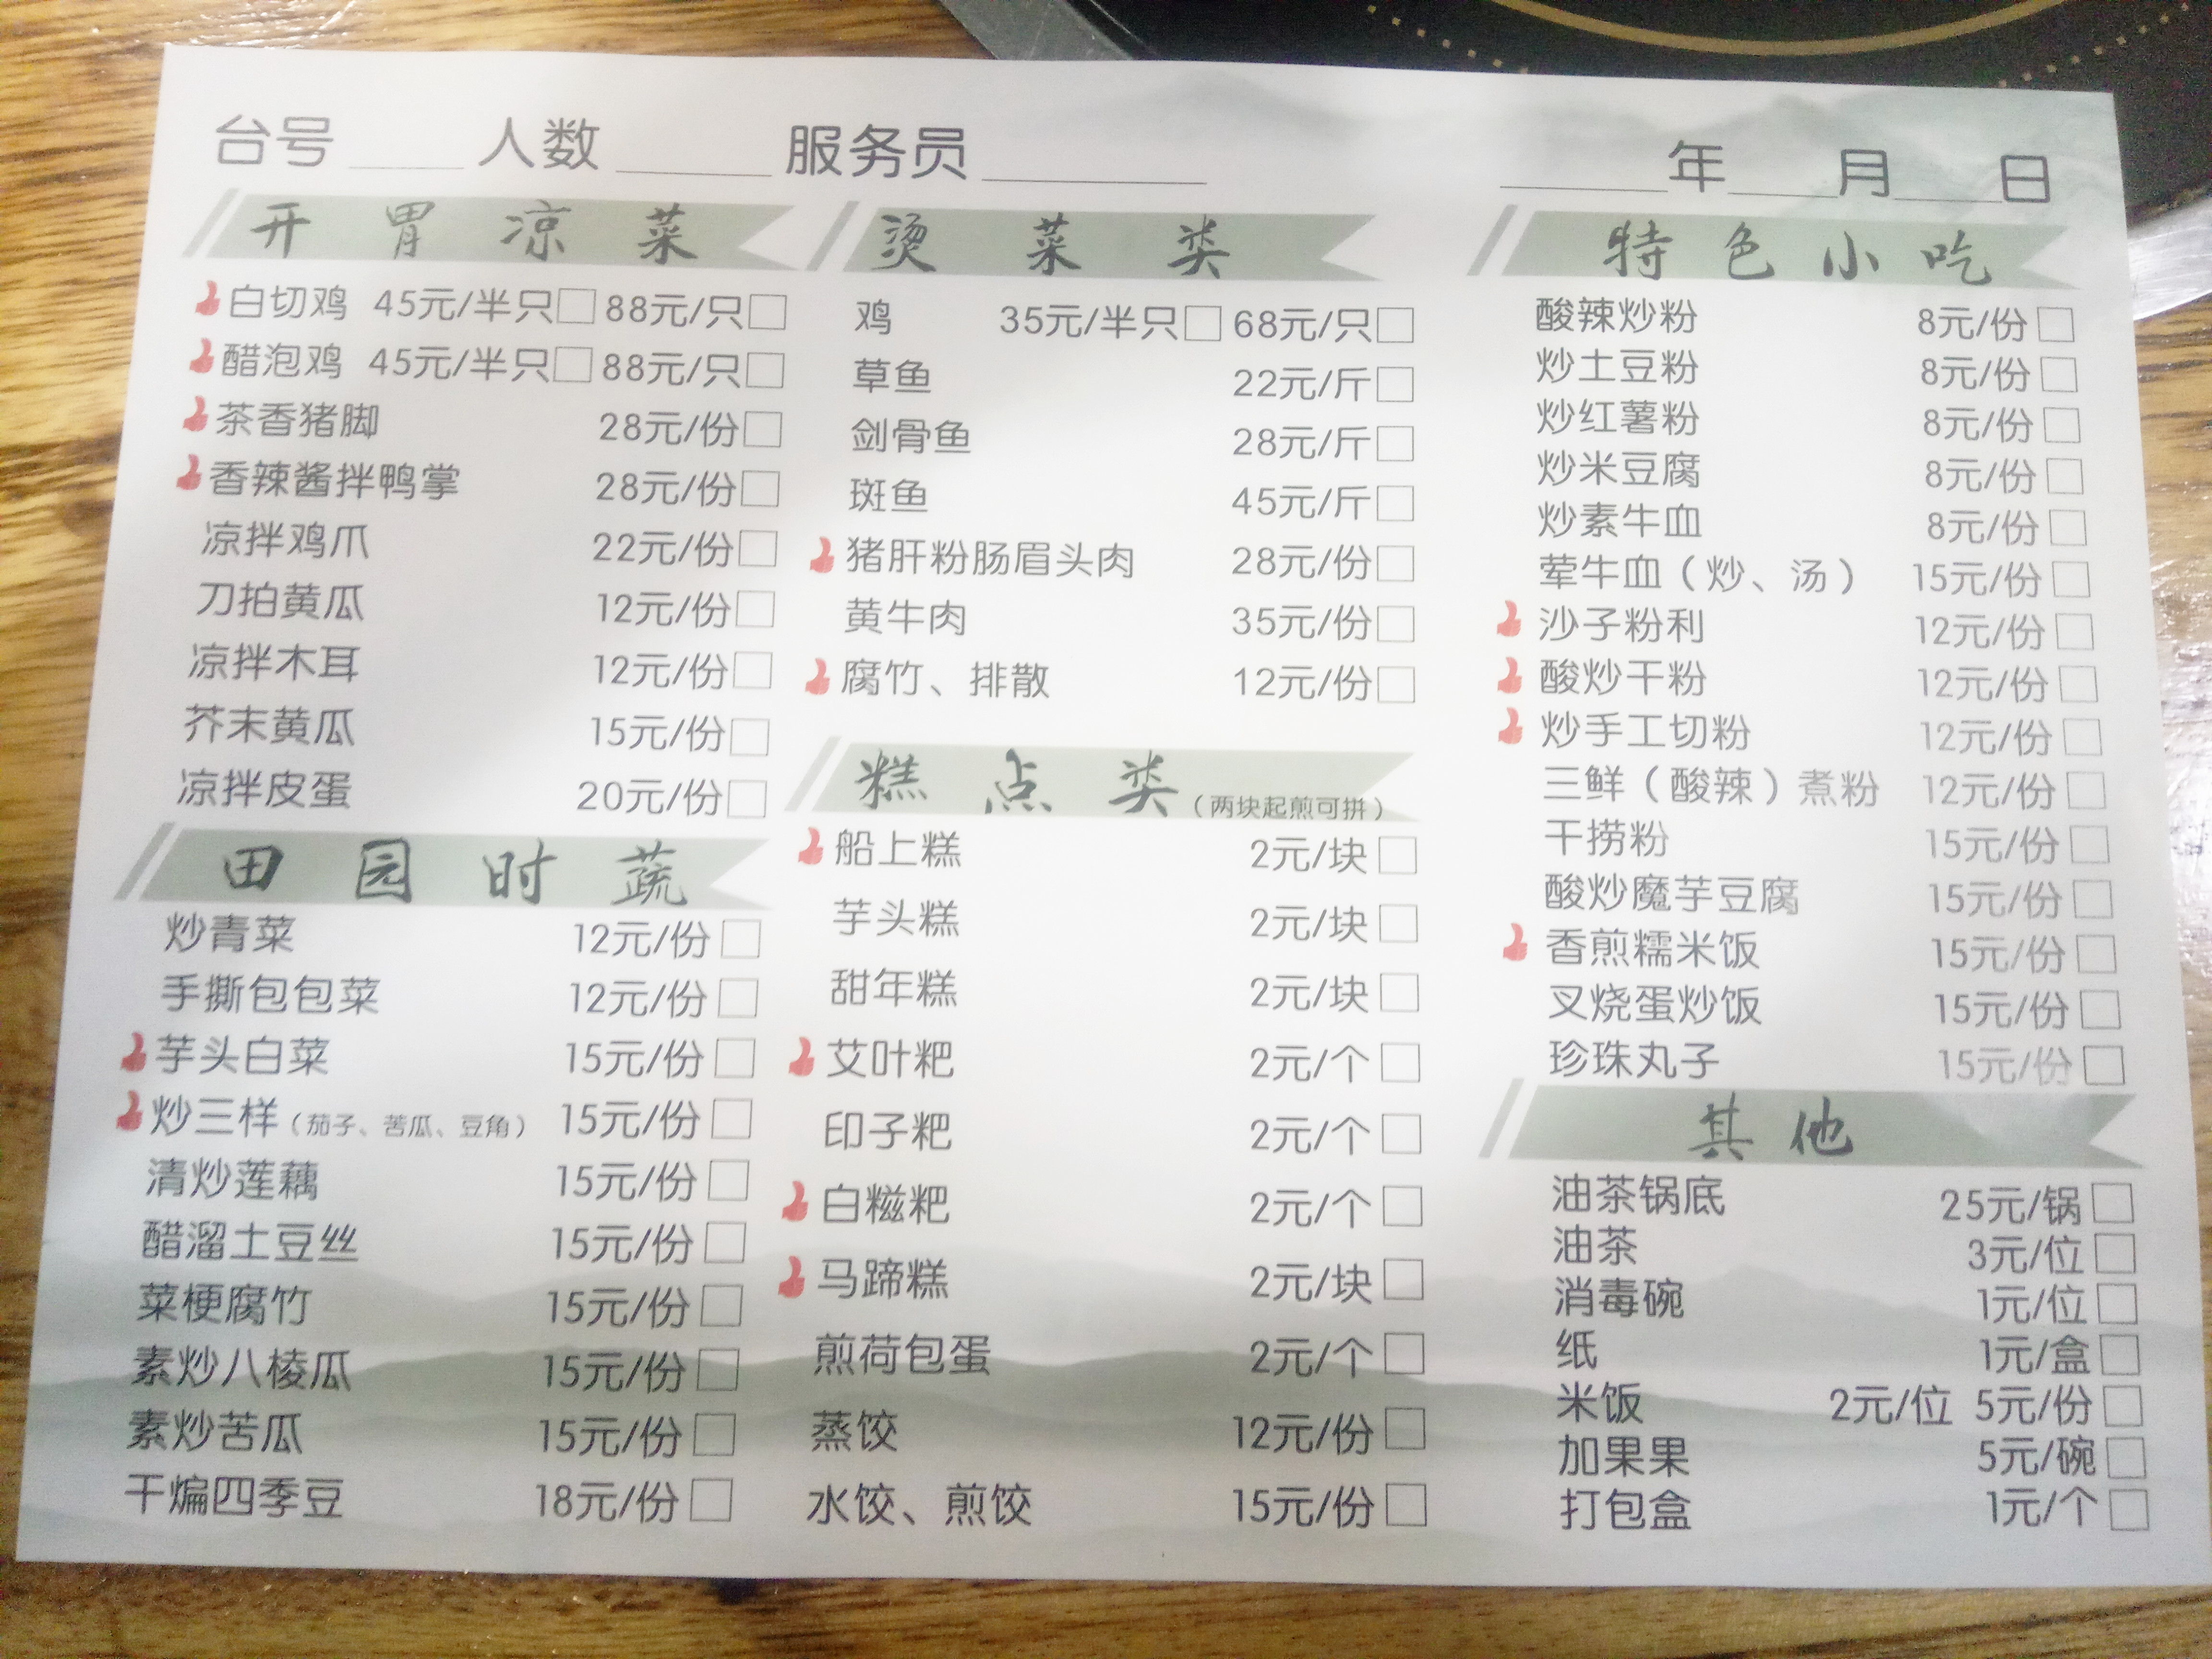 台号 人数 服务员 年 月 日
开胃凉菜
白切鸡 45元/半只 88元/只
醋泡鸡 45元/半只 88元/只
茶香猪脚 28元/份
香辣酱拌鸭掌 28元/份
凉拌鸡爪 22元/份
刀拍黄瓜 12元/份
凉拌木耳 12元/份
芥末黄瓜 15元/份
凉拌皮蛋 20元/份
田园时蔬
炒青菜 12元/份
手撕包包菜 12元/份
芋头白菜 15元/份
炒三样（茄子、苦瓜、豆角） 15元/份
清炒莲藕 15元/份
醋溜土豆丝 15元/份
菜梗腐竹 15元/份
素炒八棱瓜 15元/份
素炒苦瓜 15元/份
干煸四季豆 18元/份
烫菜类
鸡 35元/半只 68元/只
草鱼 22元/斤
剑骨鱼 28元/斤
斑鱼 45元/斤
猪肝粉肠眉头肉 28元/份
黄牛肉 35元/份
腐竹、排散 12元/份
糕点类（两块起煎可拼）
船上糕 2元/块
芋头糕 2元/块
甜年糕 2元/块
艾叶粑 2元/个
印子粑 2元/个
白糍粑 2元/个
马蹄糕 2元/块
煎荷包蛋 2元/个
蒸饺 12元/份
水饺、煎饺 15元/份
特色小吃
酸辣炒粉 8元/份
炒土豆粉 8元/份
炒红薯粉 8元/份
炒米豆腐 8元/份
炒素牛血 8元/份
荤牛血（炒、汤） 15元/份
沙子粉利 12元/份
酸炒干粉 12元/份
炒手工切粉 12元/份
三鲜（酸辣）煮粉 12元/份
干捞粉 15元/份
酸炒魔芋豆腐 15元/份
香煎糯米饭 15元/份
叉烧蛋炒饭 15元/份
珍珠丸子 15元/份
其他
油茶锅底 25元/锅
油茶 3元/位
消毒碗 1元/位
纸 1元/盒
米饭 2元/位 5元/份
加果果 5元/碗
打包盒 1元/个